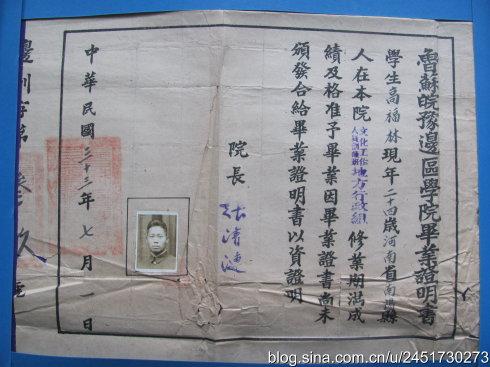 魯蘇皖豫邊區學院畢業證明書
學生高福林現年二十四歲河南省南縣
人在本院文化工作人員訓練班地方行政組修業期滿成
績及格准予畢業因畢業證書尚未
頒發合給畢業證明書以資證明
院長
中華民國三十三年七月一日
blog.sina.com.cn/u/2451730273